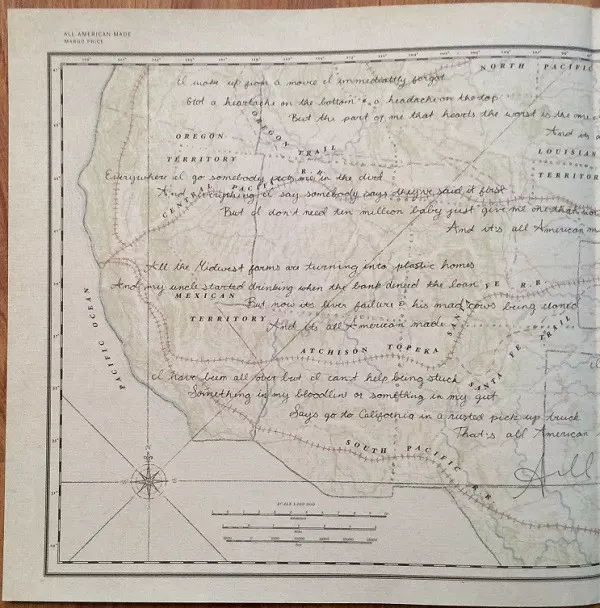 ALL AMERICAN MADE
MARGO PRICE
NORTH PACIFIC
I wake up from a movie I immediatly forgot
Got a heartache on the bottom & a headache on the top
But the part of me that hearts the worst is the one
And its a
OREGON
TERRITORY
OREGON TRAIL
LOUISIAN
TERRITOR
Everywhere I go somebody puts me in the dirt
And everything I say somebody says they've said it first
CENTRAL PACIFIC R.R.
But I don't need ten million baby just give me one that
And it's all American m
All the Midwest farms are turning into plastic homes
And my uncle started drinking when the bank denied the loan
MEXICAN
TERRITORY
But now its liver failure & his mad cows being cloned
And its all American made
SANTA FE R.R.
ATCHISON TOPEKA
SANTA FE TRAIL
PACIFIC OCEAN
I have been all over but I can't help being stuck
Something in my bloodlin or something in my gut
Says go to California in a rusted pick up truck
That's all American
SOUTH PACIFIC R.R.
All
N